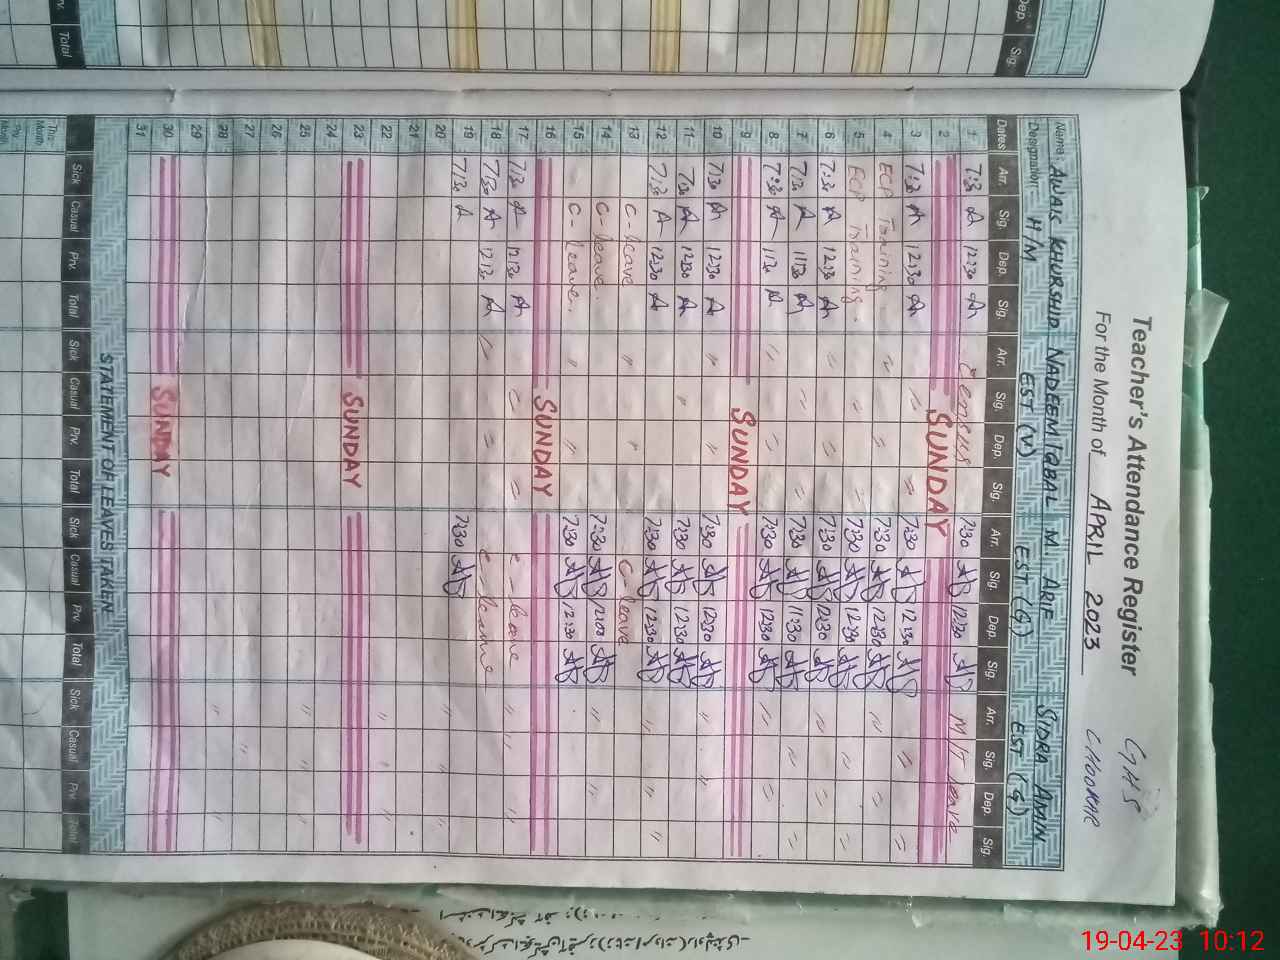 Teacher's Attendance Register
GHS
CHOOKAR
For the Month of APRIL 2023
Name: AWAIS KHURSHID NADEEM IQBAL M. ARIF SIDRA AMIN
Designation: H/M EST (V) EST (G) EST (G)
Dates Arr. Sig. Dep. Sig. Arr. Sig. Dep. Sig. Arr. Sig. Dep. Sig. Arr. Sig. Dep. Sig.
1 7:30 12:30 Census 7:30 12:30 M/T leave
2 SUNDAY
3 7:30 12:30 " " 7:30 12:30 " "
4 ECP Training " " 7:30 12:30 " "
5 ECP Training. " " 7:30 12:30 " "
6 7:30 12:30 " " 7:30 12:30 " "
7 7:30 11:30 " " 7:30 11:30 " "
8 7:30 11:30 " " 7:30 12:30 " "
9 SUNDAY
10 7:30 12:30 " " 7:30 12:30 " "
11 7:30 12:30 " 7:30 12:30
12 7:30 12:30 7:30 12:30 " "
13 C-leave " " C-leave
14 C-leave. 7:30 12:00 "
15 C-leave. " " 7:30 12:30
16 SUNDAY
17 7:30 12:30 " " c-leave " "
18 7:30 12:30 " " c-leave
19 7:30 7:30
20 " "
21
22 " "
23 SUNDAY
24
25 " "
26
27 "
28 " "
29
30 SUNDAY
31
STATEMENT OF LEAVES TAKEN
Sick Casual Prv. Total Sick Casual Prv. Total Sick Casual Prv. Total Sick Casual Prv. Total
This Month
19-04-23 10:12